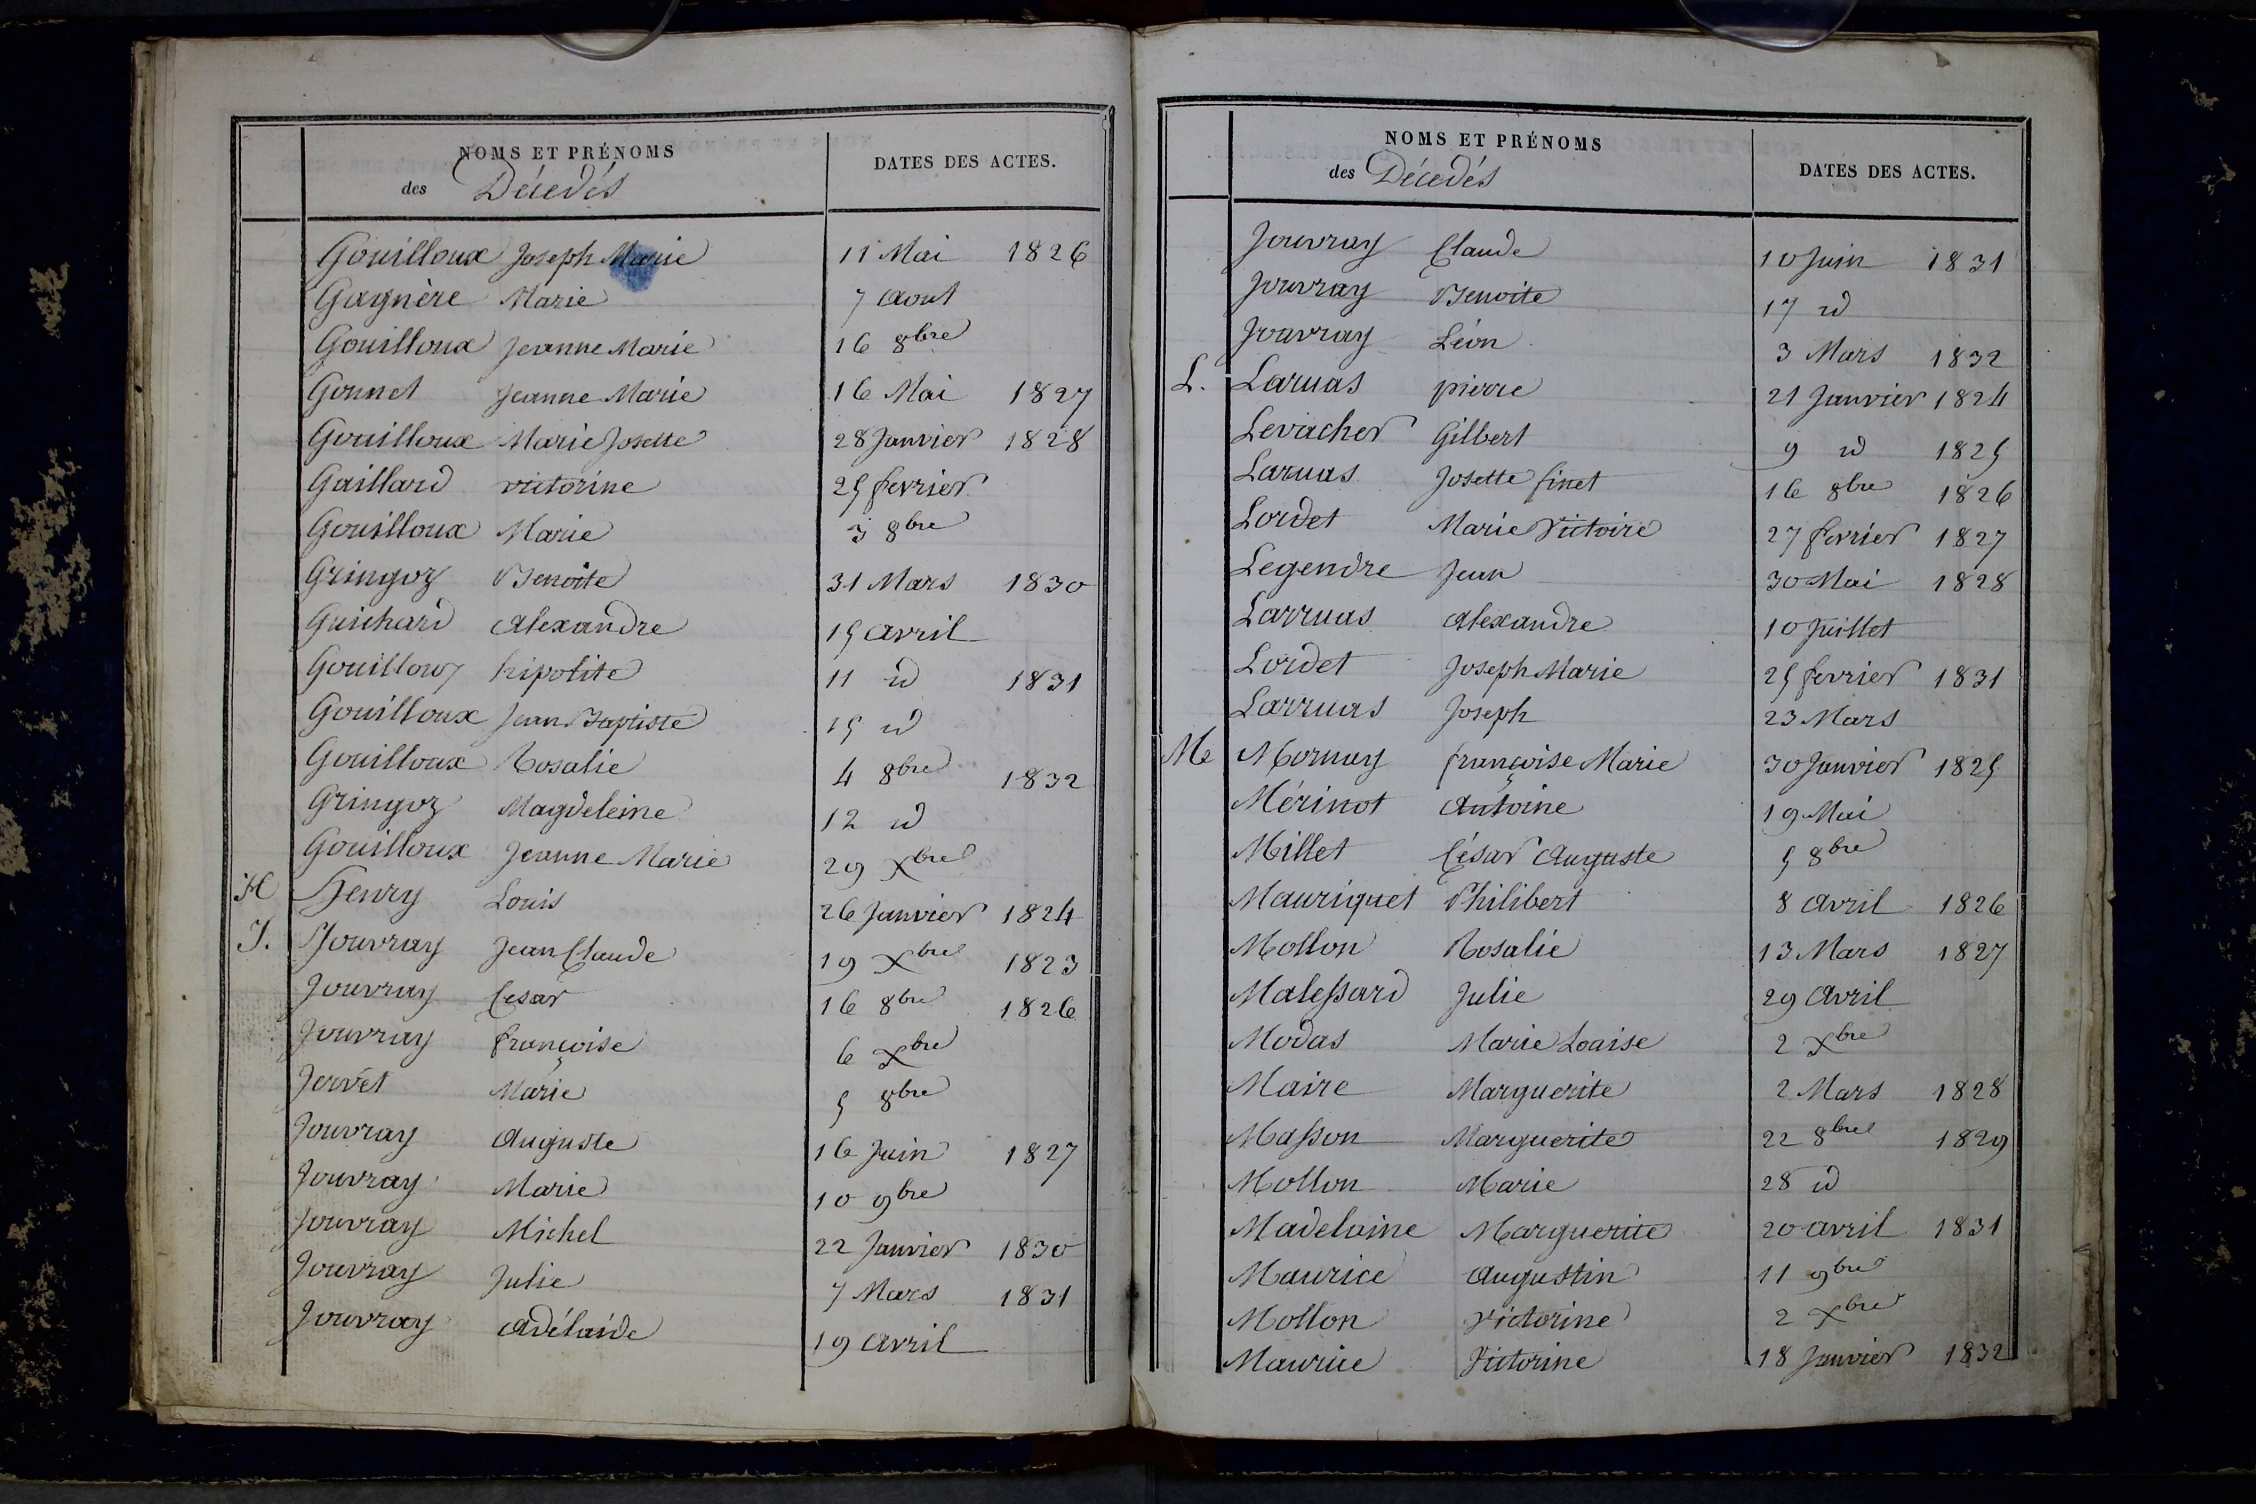 NOMS ET PRÉNOMS
des Décedés
DATES DES ACTES.
Gouilloux Joseph Marie 11 Mai 1826
Gagnère Marie 7 Aout
Gouilloux Jeanne Marie 16 8bre
Gonnet Jeanne Marie 16 Mai 1827
Gouilloux Marie Josette 28 Janvier 1828
Gaillard victorine 25 fevrier
Gouilloux Marie 3 8bre
Gringoz Benoite 31 Mars 1830
Guichard Alexandre 15 Avril
Gouilloux hipolite 11 id 1831
Gouilloux Jean Baptiste 15 id
Gouilloux Rosalie 4 8bre 1832
Gringoz Magdeleine 12 id
Gouilloux Jeanne Marie 29 Xbre
H Henry Louis 26 Janvier 1824
J. Jouvray Jean Claude 19 Xbre 1823
Jouvray Cesar 16 8bre 1826
Jouvray françoise 6 Xbre
Jervet Marie 5 8bre
Jouvray Auguste 16 Juin 1827
Jouvray Marie 10 9bre
Jouvray Michel 22 Janvier 1830
Jouvray Julie 7 Mars 1831
Jouvray Adélaide 19 Avril
NOMS ET PRÉNOMS
des Décedés
DATES DES ACTES.
Jouvray Claude 10 Juin 1831
Jouvray Benoite 17 id
Jouvray Léon 3 Mars 1832
L. Laruas pierre 21 Janvier 1824
Levacher Gilbert 9 id 1825
Laruas Josette finet 16 8bre 1826
Lordet Marie Victoire 27 fevrier 1827
Legendre Jean 30 Mai 1828
Larruas Alexandre 10 Juillet
Lordet Joseph Marie 25 fevrier 1831
Larruas Joseph 23 Mars
M Mornay françoise Marie 30 Janvier 1825
Mérinot Antoine 19 Mai
Millet César Auguste 5 8bre
Mauriquet Philibert 8 Avril 1826
Mollon Rosalie 13 Mars 1827
Malessard Julie 29 Avril
Modas Marie Louise 2 Xbre
Maire Marguerite 2 Mars 1828
Masson Marguerite 22 8bre 1829
Mollon Marie 28 id
Madelaine Marguerite 20 avril 1831
Maurice Augustin 11 9bre
Mollon victorine 2 Xbre
Maurice Victorine 18 Janvier 1832